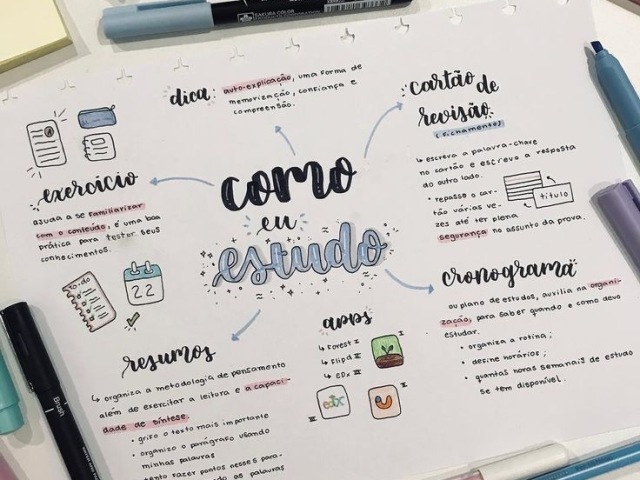 SAKURA COLOR
dica: auto-explicação, uma forma de
memorização, confiança e
compreensão.
cartão de
revisão
(fichamento)
↳ escreva a palavra-chave
no cartão e escreva a resposta
do outro lado.
• repasse o car-
tão várias ve-
zes até ter plena
segurança no assunto da prova.
título
exercício
ajuda a se familiarizar
com o conteúdo, é uma boa
prática para testar seus
conhecimentos.
como
eu
estudo
to-do
22
cronograma
ou plano de estudos, auxilia na organi-
zação, para saber quando e como devo
estudar.
• organiza a rotina;
• define horários;
• quantas horas semanais de estudo
se tem disponível.
apps
↳ Forest I
↳ Flipd II
↳ EDX III
I
II
III
edx
resumos
↳ organiza a metodologia de pensamento
além de exercitar a leitura e a capaci-
dade de síntese.
• grifo o texto mais importante
• organizo o parágrafo usando
minhas palavras
tento fazer pontos nesses pará-
as palavras
Brush